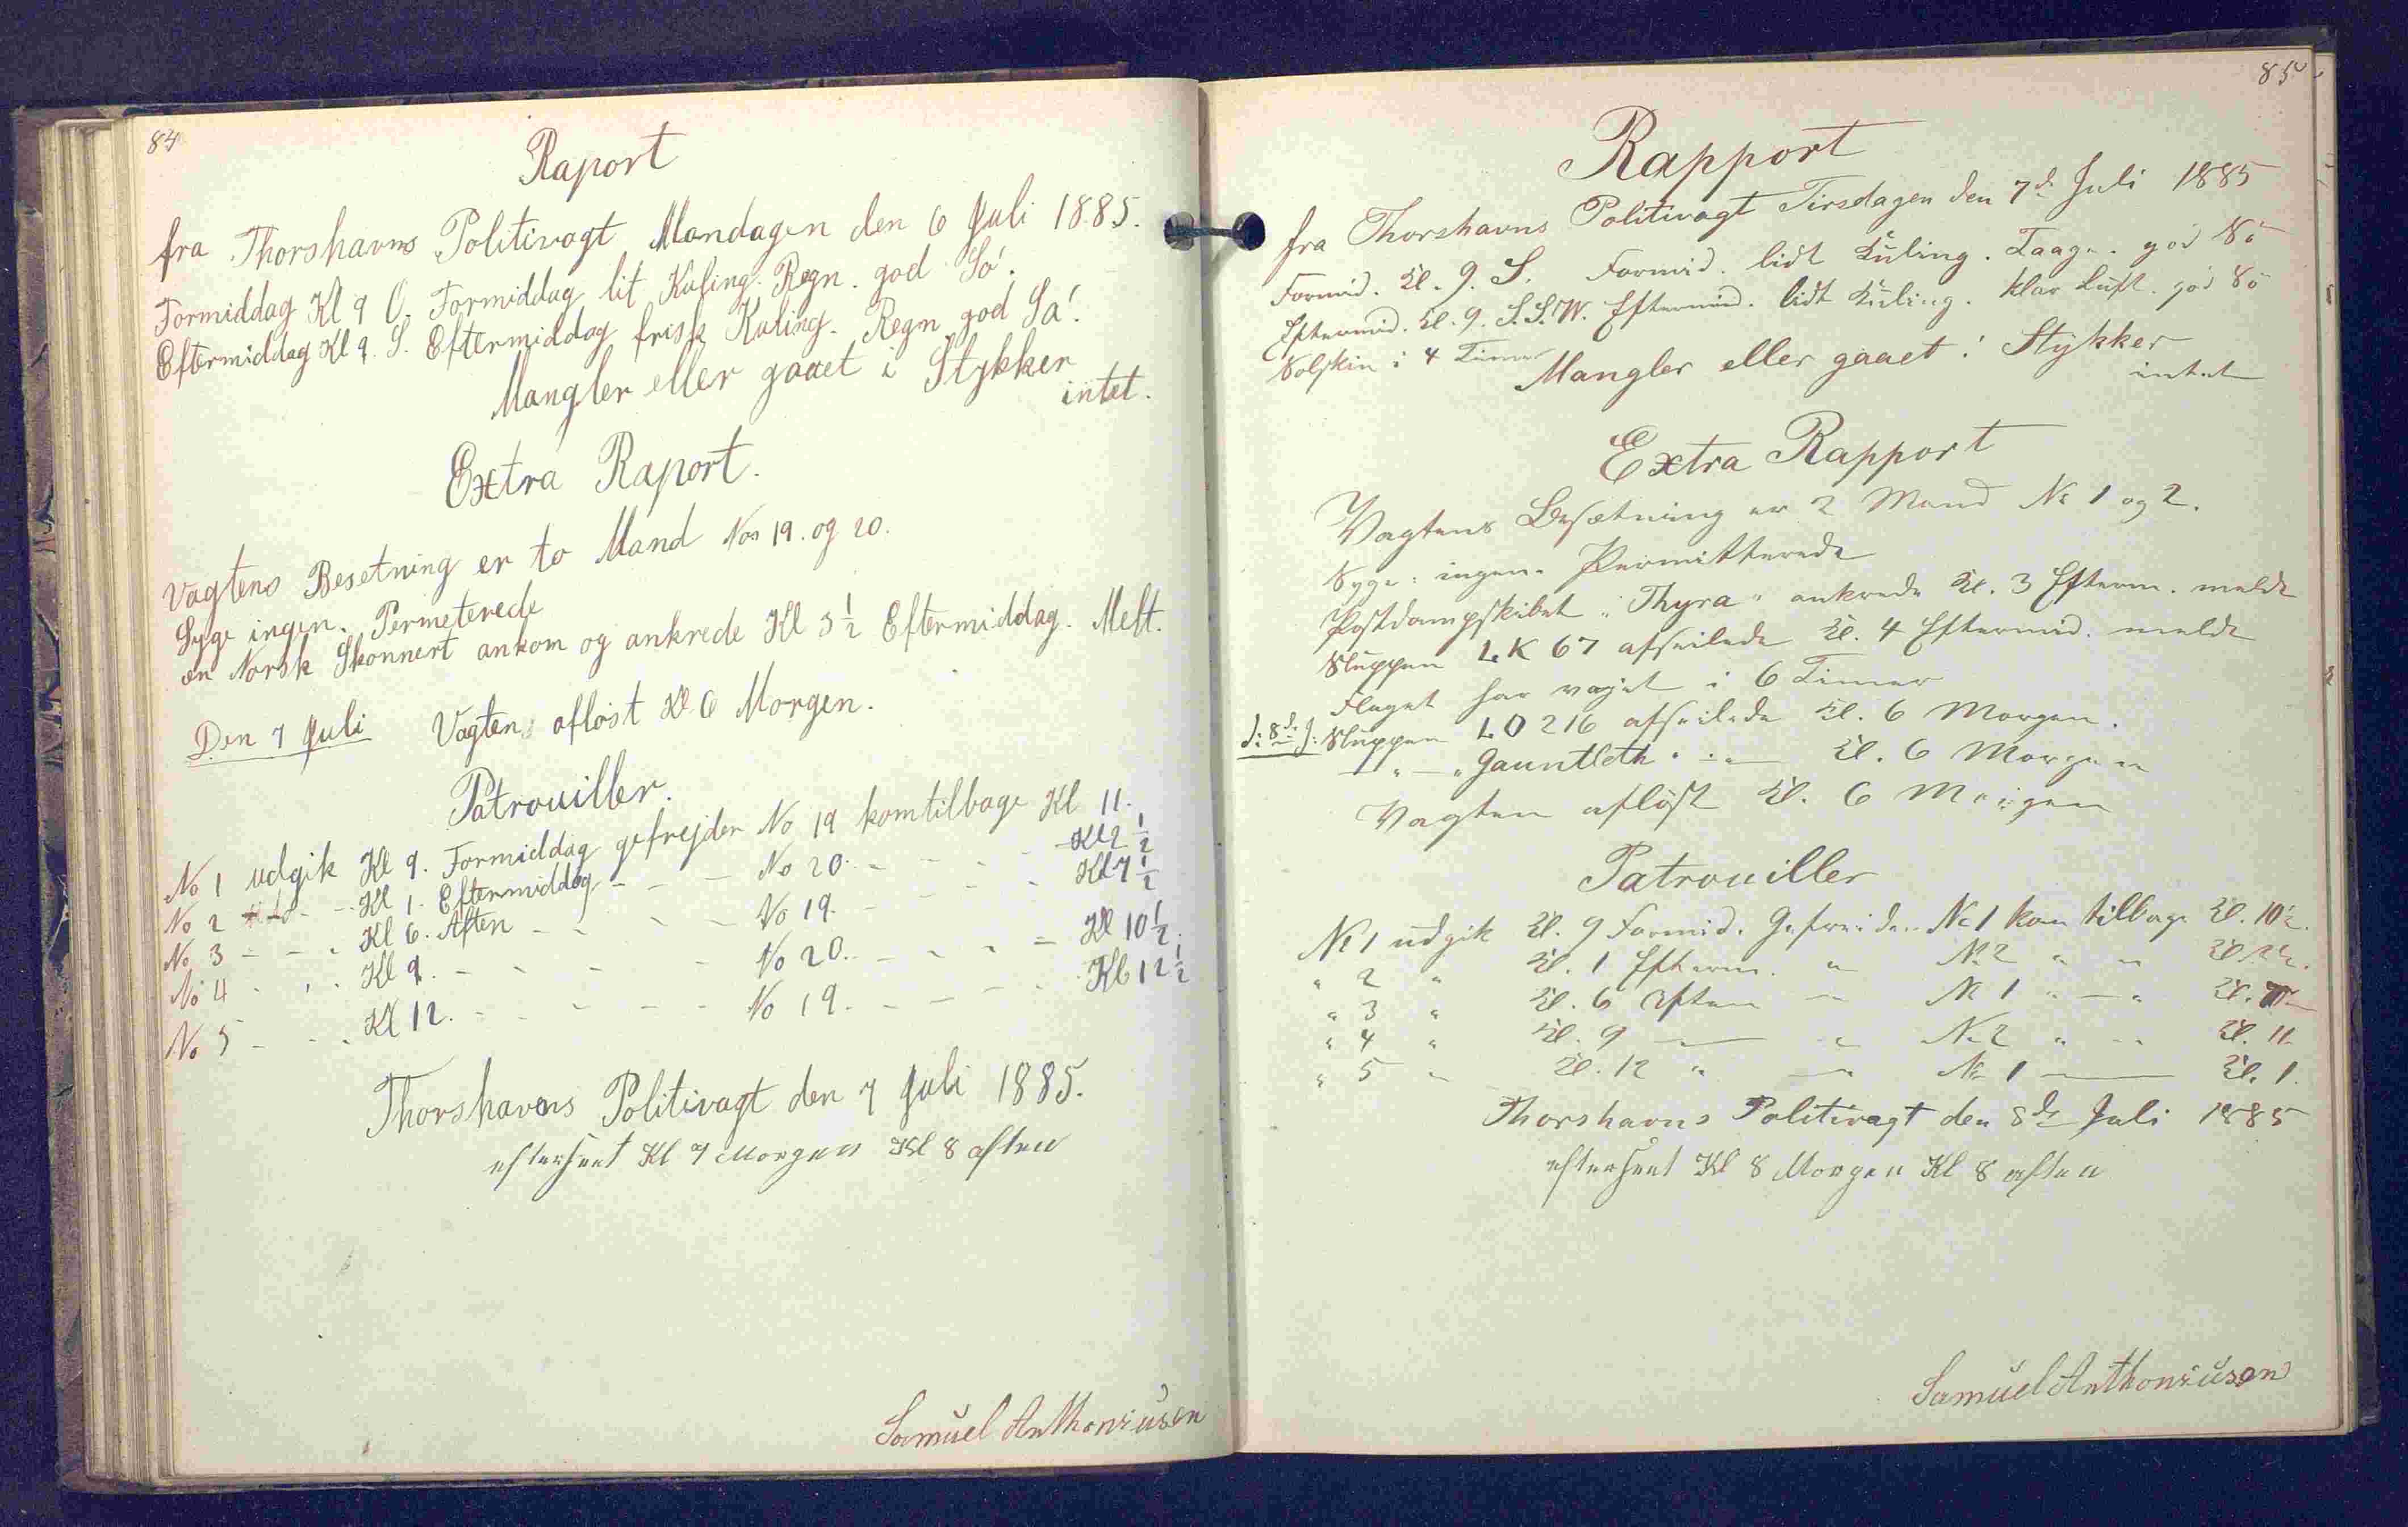 84
Raport
fra Thorshavns Politivagt Mandagen den 6 Juli 1885.
Formiddag Kl 9 O. Formiddag lit Kuling. Regn. god Sö.
Eftermiddag Kl 9. S. Eftermiddag frisk Kuling. Regn god Sö.
Mangler eller gaaet i Stykker
intet.
Extra Raport.
Vagtens Besetning er to Mand Nos 19. og 20.
Syge ingen. Permeterede
en Norsk Skonnert ankom og ankrede Kl 3 1/2 Eftermiddag. Melt.
Den 7 Juli Vagten afløst Kl 6 Morgen.
Patrouiller.
No 1 udgik Kl 9. Formiddag gefrejder No 19 komtilbage Kl 11.
No 2 - - Kl 1. Eftermiddag - - - No 20. - - - - Kl 2 1/2
No 3 - - - Kl 6. Aften - - - - No 19. - - - - Kl 7 1/2
No 4 - - - Kl 9. - - - - No 20. - - - - Kl 10 1/2.
No 5 - - - Kl 12. - - - - No 19. - - - - Kl 12 1/2
Thorshavns Politivagt den 7 Juli 1885.
efterseet Kl 7 Morgen Kl 8 aften
Samuel Anthoniusen
85
Rapport
fra Thorshavns Politivagt Tirsdagen den 7d. Juli 1885
Formid. Kl. 9. S. Formid. lidt Kuling. Taage. god Sö
Eftermid. Kl. 9. S.S.W. Eftermid. lidt Kuling. klar Luft. god Sö
Solskin i 4 Timer
Mangler eller gaaet i Stykker
intet
Extra Rapport
Vagtens Besætning er 2 Mand No 1 og 2.
Syge: ingen. Permitterede
Postdampskibet "Thyra" ankrede Kl. 3 Efterm. meldt
Sluppen LK 67 afseilede Kl. 4 Eftermid. meldt
Flaget har vajet i 6 Timer
d. 8d. J. Sluppen LO 216 afseilede Kl. 6 Morgen.
— " — "Gauntleth" — " — Kl. 6 Morgen
Vagten afløst Kl. 6 Morgen
Patrouiller
No 1 udgik Kl. 9 Formid. Gefreider No 1 kom tilbage Kl. 10 1/2.
" 2 " Kl. 1 Efterm. " No 2 " " Kl 2 1/2.
" 3 " Kl. 6 Aften — No 1 " — " Kl.
" 4 " Kl. 9 — " No 2 " — Kl. 11
" 5 " Kl. 12 " — No 1 — Kl. 1.
Thorshavns Politivagt den 8de Juli 1885
efterseet Kl 8 Morgen Kl 8 aften
Samuel Anthoniusen